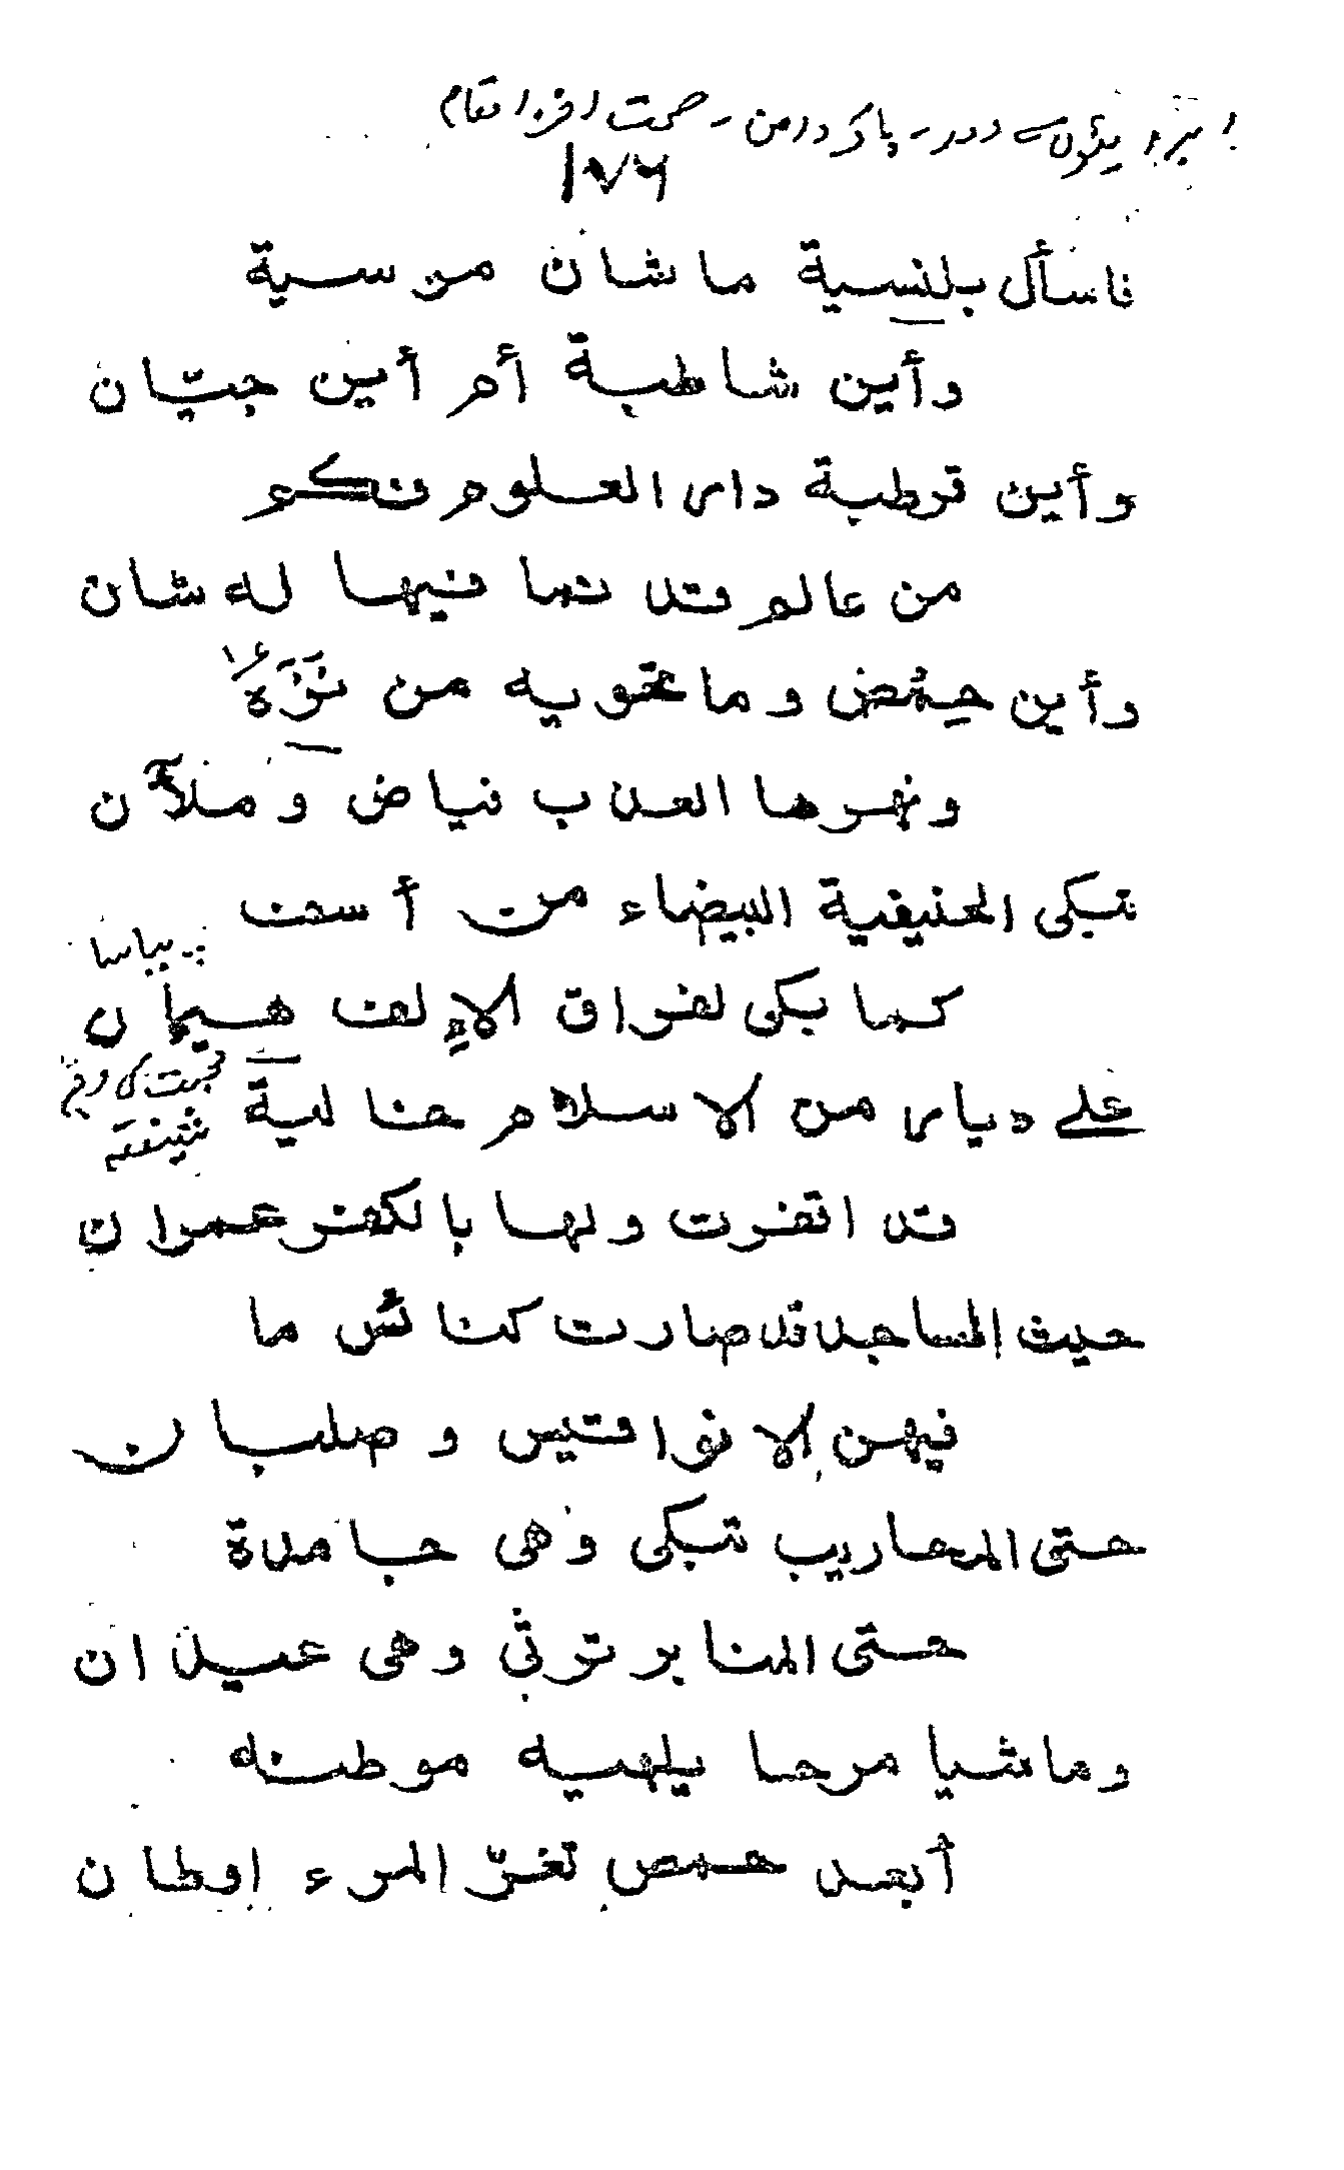 برائیوں سے دور - پاک دامن - صحت افزا مقام
١٧٦
فاسأل بلنسية ما شان مرسية
وأين شاطبة أم أين جيّان
وأين قرطبة دار العلوم فكم
من عالم قد سما فيها له شان
وأين حمص وما تحويه من نزه
ونهرها العذب فياض وملآن
تبكى الحنيفية البيضاء من أسف
پیاسا
كما بكى لفراق الإلف هيمان
محبت کی وجہ
على ديار من الاسلام خالية
قد اقفرت ولها بالكفر عمران
حيث المساجد قد صارت كنائس ما
فيهن الا نواقيس وصلبان
حتى المحاريب تبكى وهى جامدة
حتى المنابر ترثي وهى عيدان
وماشيا مرحا يلهيه موطنه
أبعد حمص تغرّ المرء اوطان